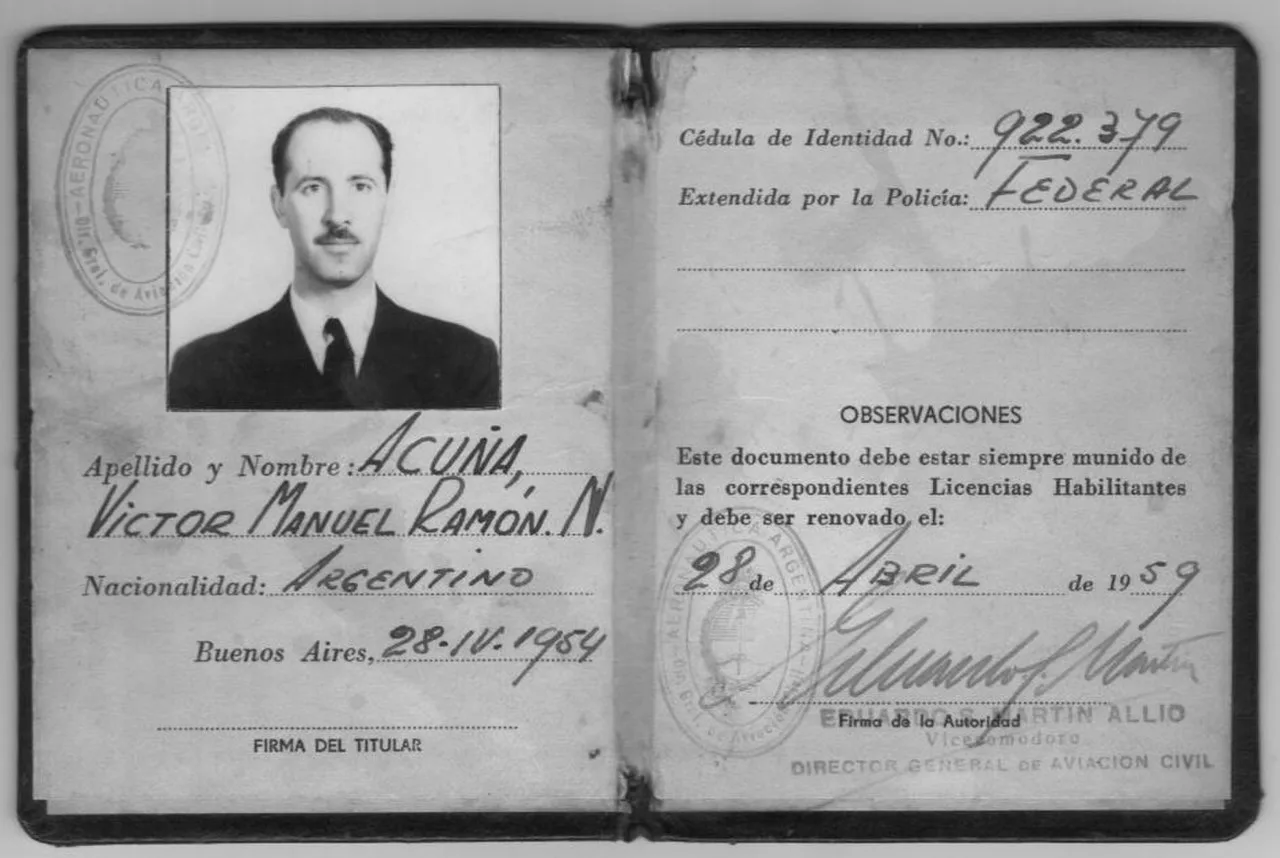 AERONAUTICA
Dir. Gral. de Aviación
Apellido y Nombre: ACUÑA,
VICTOR MANUEL RAMÓN. N.
Nacionalidad: ARGENTINO
Buenos Aires, 28-IV-1954
FIRMA DEL TITULAR
Cédula de Identidad No.: 922.379
Extendida por la Policía: FEDERAL
OBSERVACIONES
Este documento debe estar siempre munido de
las correspondientes Licencias Habilitantes
y debe ser renovado el:
28 de ABRIL de 1959
AERONAUTICA ARGENTINA
Dir. Gral. de Aviación Civil
Eduardo S. Martin
Firma de la Autoridad
EDUARDO S. MARTIN ALLIO
Vicecomodoro
DIRECTOR GENERAL DE AVIACION CIVIL